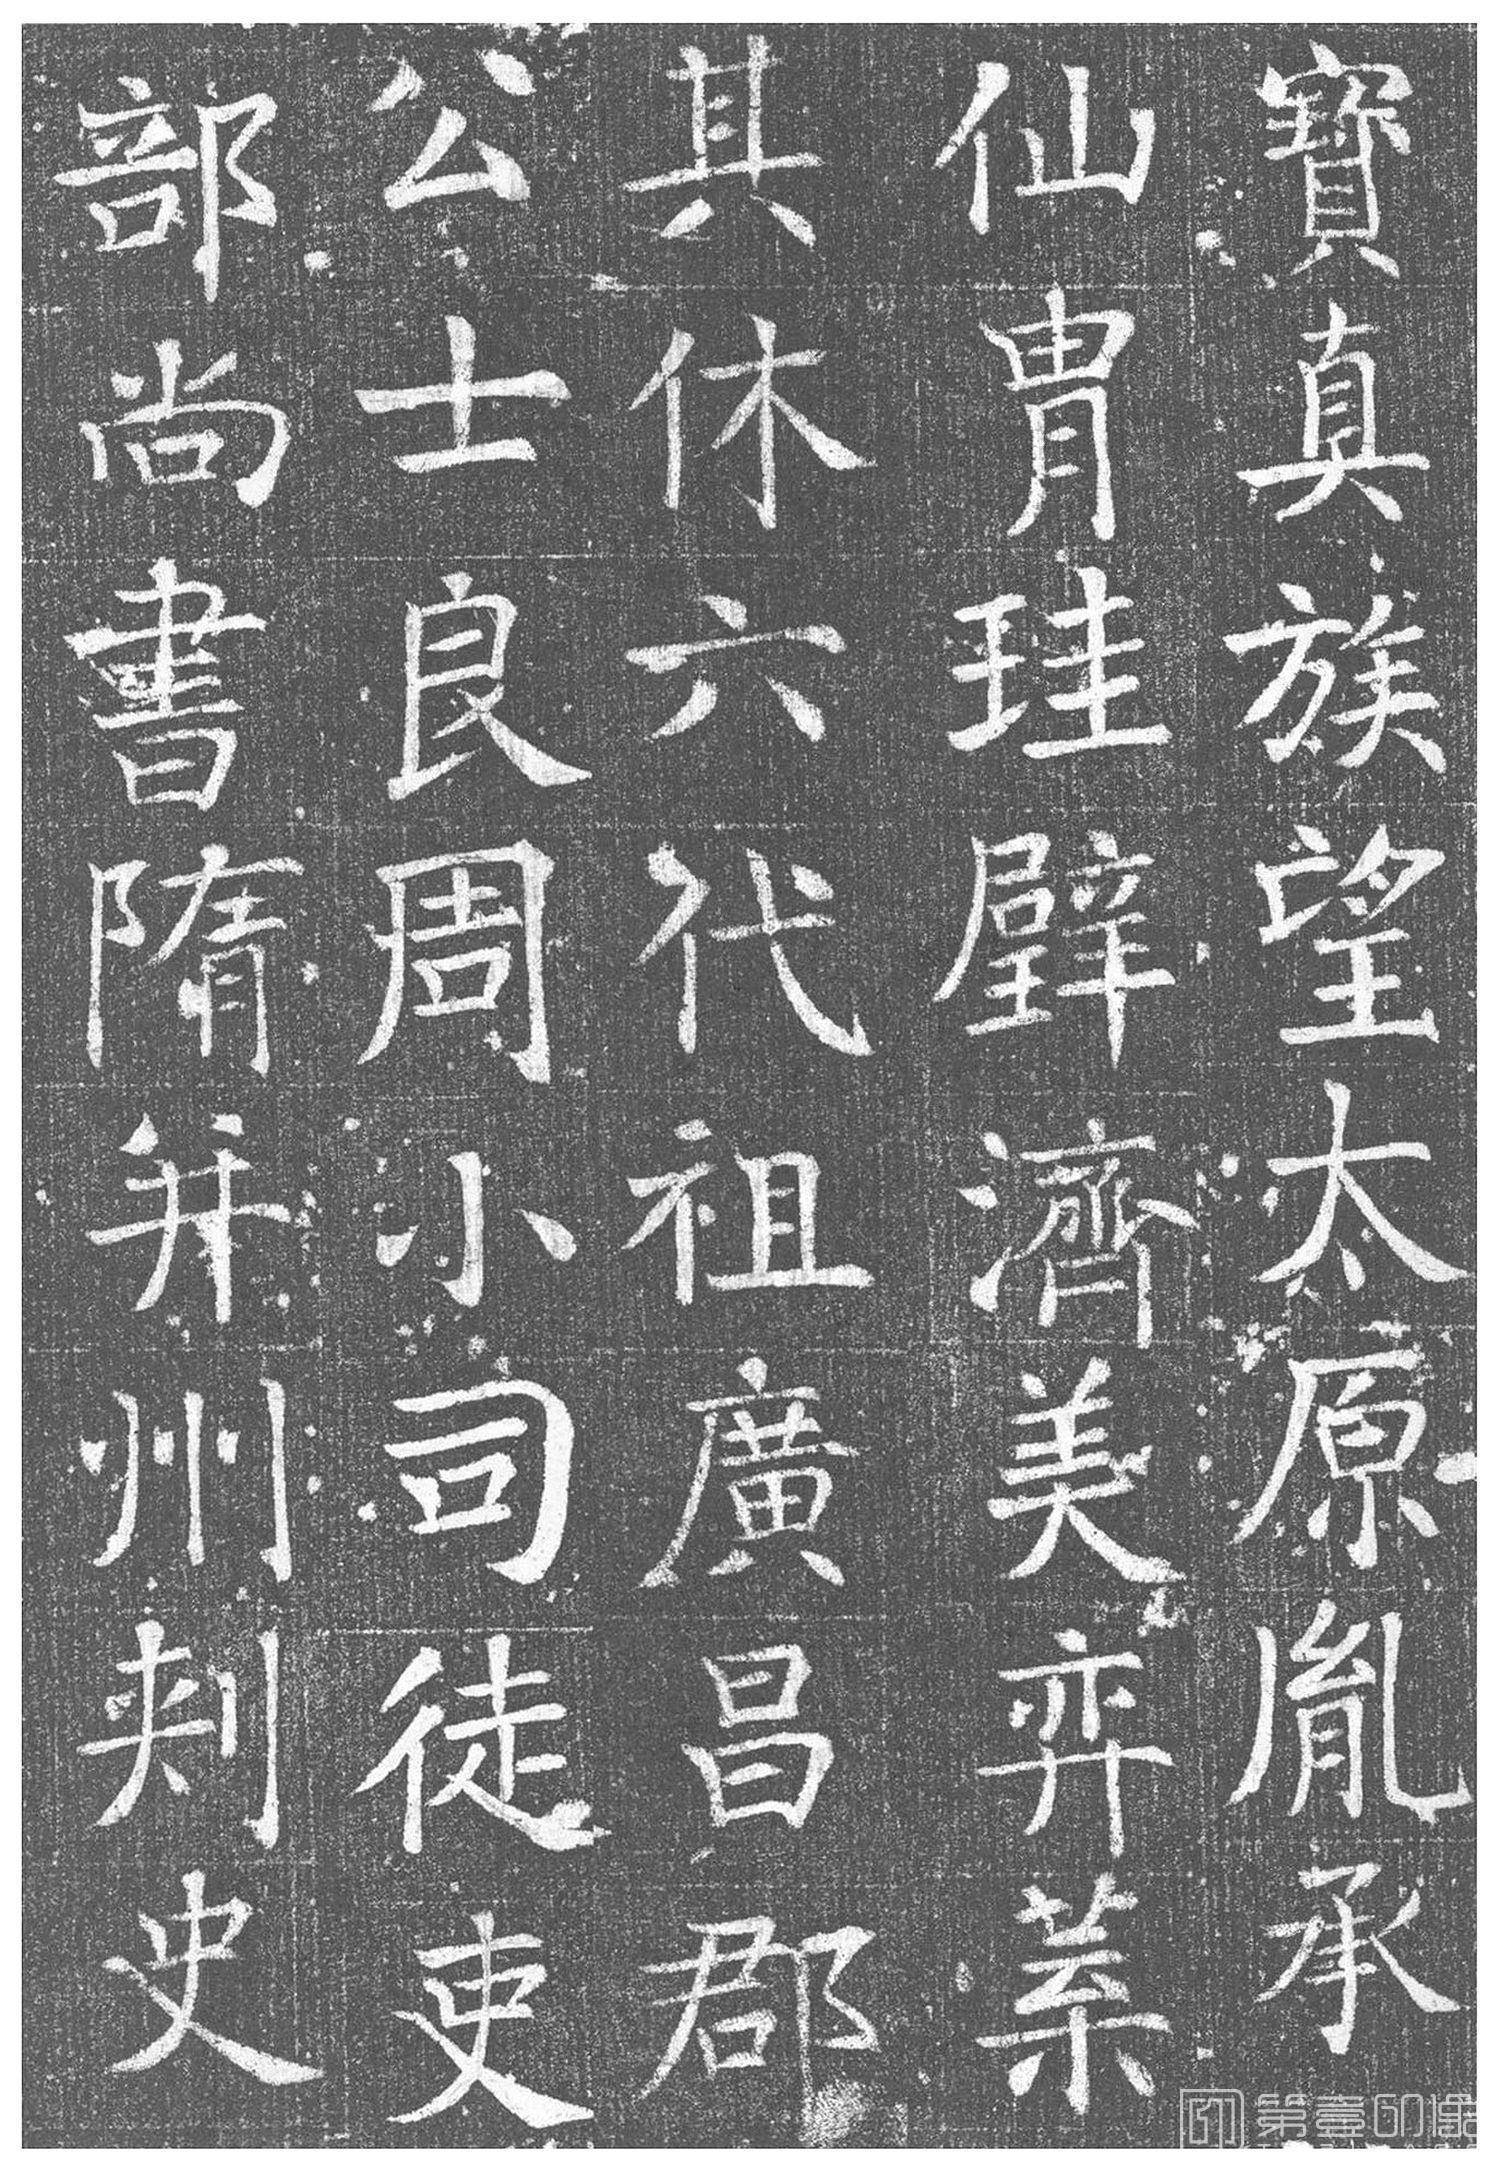 寶真族望太原胤承
仙胄珪璧濟美弈葉
其休六代祖廣昌郡
公士良周小司徒吏
部尚書隋并州刺史
第壹印